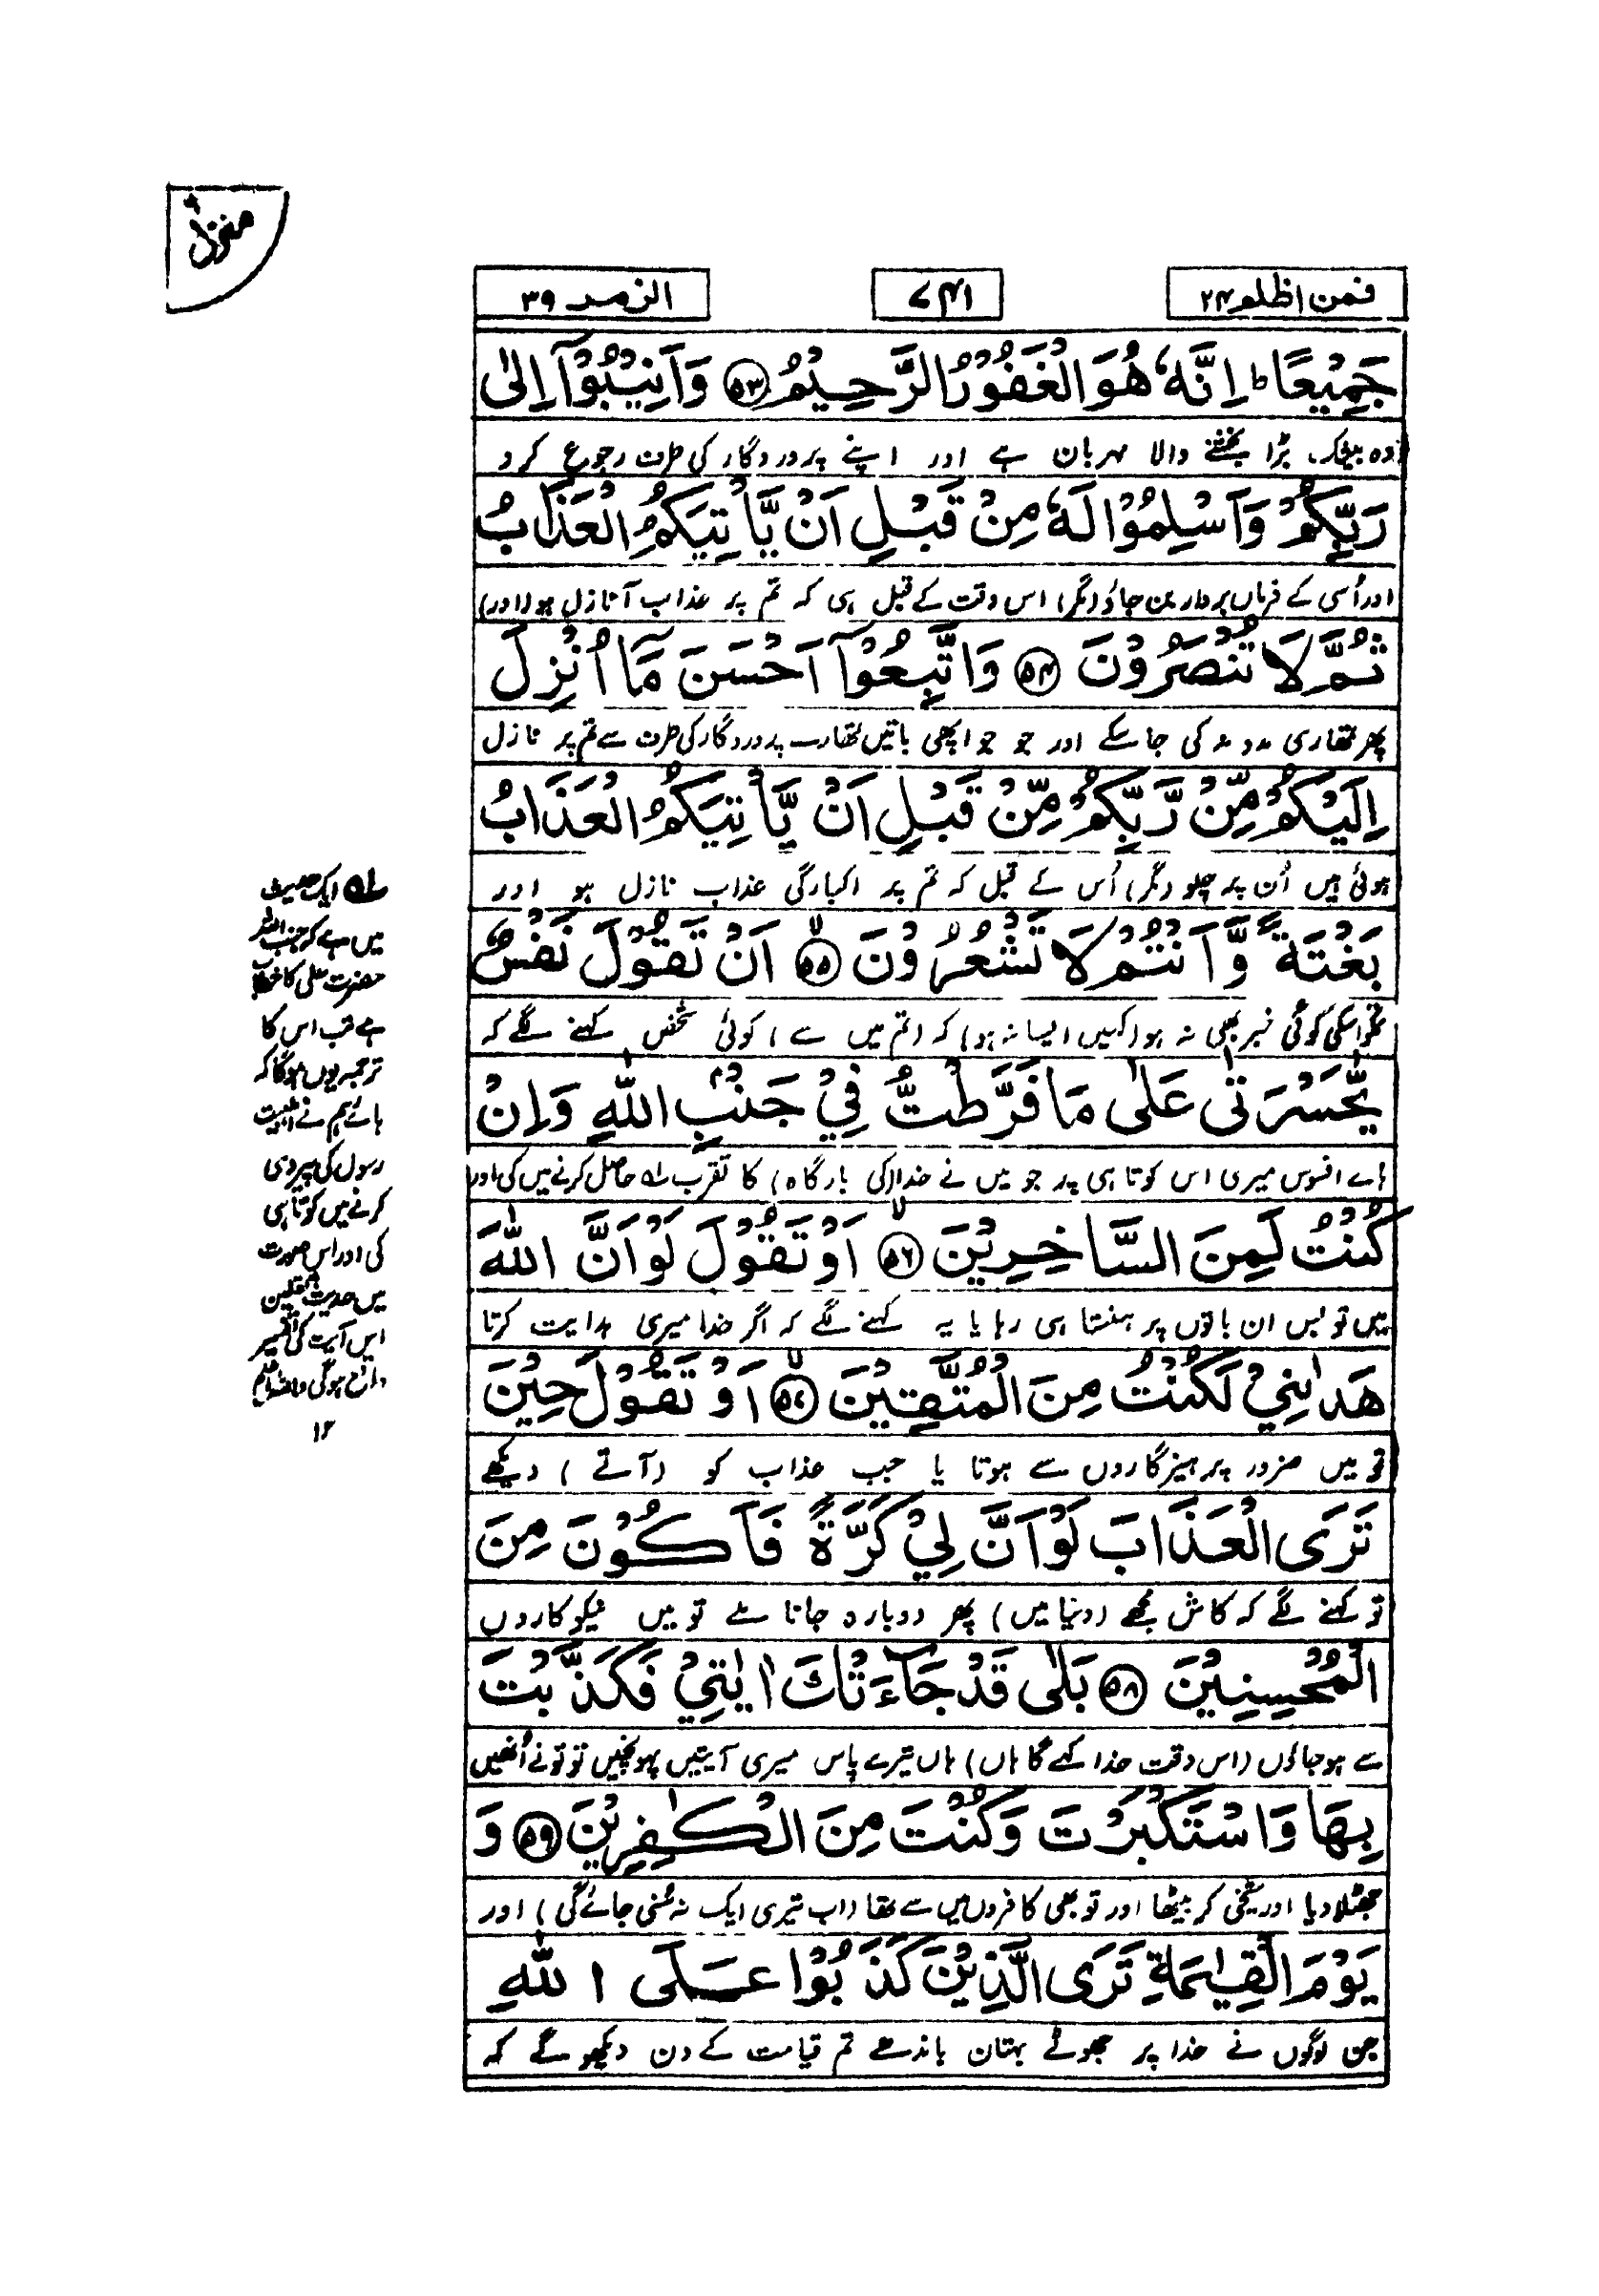 منزل
فمن اظلم ۲۴
۷۴۱
الزمر ۳۹
جَمِيْعًا ؕ اِنَّهٗ هُوَ الْغَفُوْرُ الرَّحِيْمُ ﴿۵۳﴾ وَاَنِيْبُوْۤا اِلٰى
وہ بیشک بڑا بخشنے والا مہربان ہے اور اپنے پروردگار کی طرف رجوع کرو
رَبِّكُمْ وَاَسْلِمُوْا لَهٗ مِنْ قَبْلِ اَنْ يَّاْتِيَكُمُ الْعَذَابُ
اور اُسی کے فرماں بردار بن جاؤ (مگر) اس وقت کے قبل ہی کہ تم پر عذاب آنازل ہو (اور)
ثُمَّ لَا تُنْصَرُوْنَ ﴿۵۴﴾ وَاتَّبِعُوْۤا اَحْسَنَ مَاۤ اُنْزِلَ
پھر تمھاری مدد نہ کی جا سکے اور جو جو اچھی باتیں تمھارے پروردگار کی طرف سے تم پر نازل
اِلَيْكُمْ مِّنْ رَّبِّكُمْ مِّنْ قَبْلِ اَنْ يَّاْتِيَكُمُ الْعَذَابُ
ہوئی ہیں اُن پر چلو (مگر) اُس کے قبل کہ تم پر اکبارگی عذاب نازل ہو اور
بَغْتَةً وَّاَنْتُمْ لَا تَشْعُرُوْنَ ﴿۵۵﴾ اَنْ تَقُوْلَ نَفْسٌ
تمکو اسکی کوئی خبر بھی نہ ہو (کہیں ایسا نہ ہو) کہ (تم میں سے) کوئی شخص کہنے لگے کہ
يّٰحَسْرَتٰى عَلٰى مَا فَرَّطْتُّ فِيْ جَنْۢبِ اللّٰهِ وَاِنْ
ہاے افسوس میری اس کوتاہی پر جو میں نے خدا (کی بارگاہ) کا تقرب لہ حاصل کرنے میں کی اور
كُنْتُ لَمِنَ السَّاخِرِيْنَ ﴿۵۶﴾ اَوْ تَقُوْلَ لَوْ اَنَّ اللّٰهَ
میں تو بس ان باتوں پر ہنستا ہی رہا یا یہ کہنے لگے کہ اگر خدا میری ہدایت کرتا
هَدٰىنِيْ لَكُنْتُ مِنَ الْمُتَّقِيْنَ ﴿۵۷﴾ اَوْ تَقُوْلَ حِيْنَ
تو میں ضرور پرہیزگاروں سے ہوتا یا جب عذاب کو (آتے) دیکھے
تَرَى الْعَذَابَ لَوْ اَنَّ لِيْ كَرَّةً فَاَكُوْنَ مِنَ
تو کہنے لگے کہ کاش مجھے (دنیا میں) پھر دوبارہ جانا ملے تو میں نیکوکاروں
الْمُحْسِنِيْنَ ﴿۵۸﴾ بَلٰى قَدْ جَآءَتْكَ اٰيٰتِيْ فَكَذَّبْتَ
سے ہو جاؤں (اس وقت خدا کہے گا ہاں) ہاں تیرے پاس میری آیتیں پہونچیں تو تو نے اُنھیں
بِهَا وَاسْتَكْبَرْتَ وَكُنْتَ مِنَ الْكٰفِرِيْنَ ﴿۵۹﴾ وَ
جھٹلا دیا اور شیخی کر بیٹھا اور تو بھی کافروں میں سے تھا (اب تیری ایک نہ سُنی جائے گی) اور
يَوْمَ الْقِيٰمَةِ تَرَى الَّذِيْنَ كَذَبُوْا عَلَى اللّٰهِ
جن لوگوں نے خدا پر جھوٹے بہتان باندھے تم قیامت کے دن دیکھو گے کہ
لہ ایک حدیث
میں ہے کہ جنب اللہ
حضرت علی کا خطاب
ہے تب اس کا
ترجمہ یوں ہوگا کہ
ہاے ہم نے اہلبیت
رسول کی پیروی
کرنے میں کوتاہی
کی اور اس صورت
میں حدیث ثقلین
اس آیت کی تفسیر
واقع ہوگی واللہ اعلم
۱۲